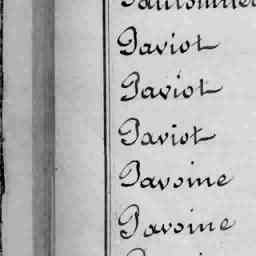 Paviot
Paviot
Paviot
Pavoine
Pavoine